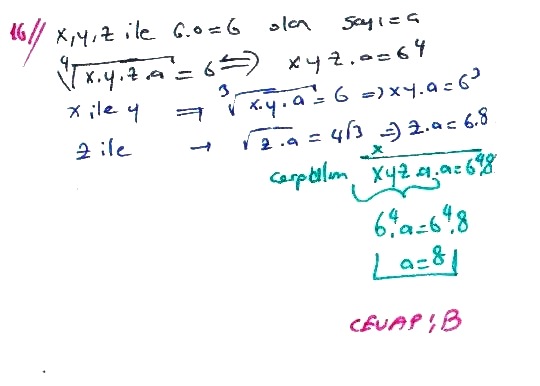 16// x,y,z ile G.O=6 olan sayı=a
⁴√x.y.z.a = 6 ⟺ xyz.a=6⁴
x ile y ⟹ ³√x.y.a = 6 ⟹ xy.a=6³
z ile → √z.a = 4√3 ⟹ z.a=6.8
x
çarpalım xyz.a.a=6⁴.8
6⁴.a=6⁴.8
a=8
CEVAP: B